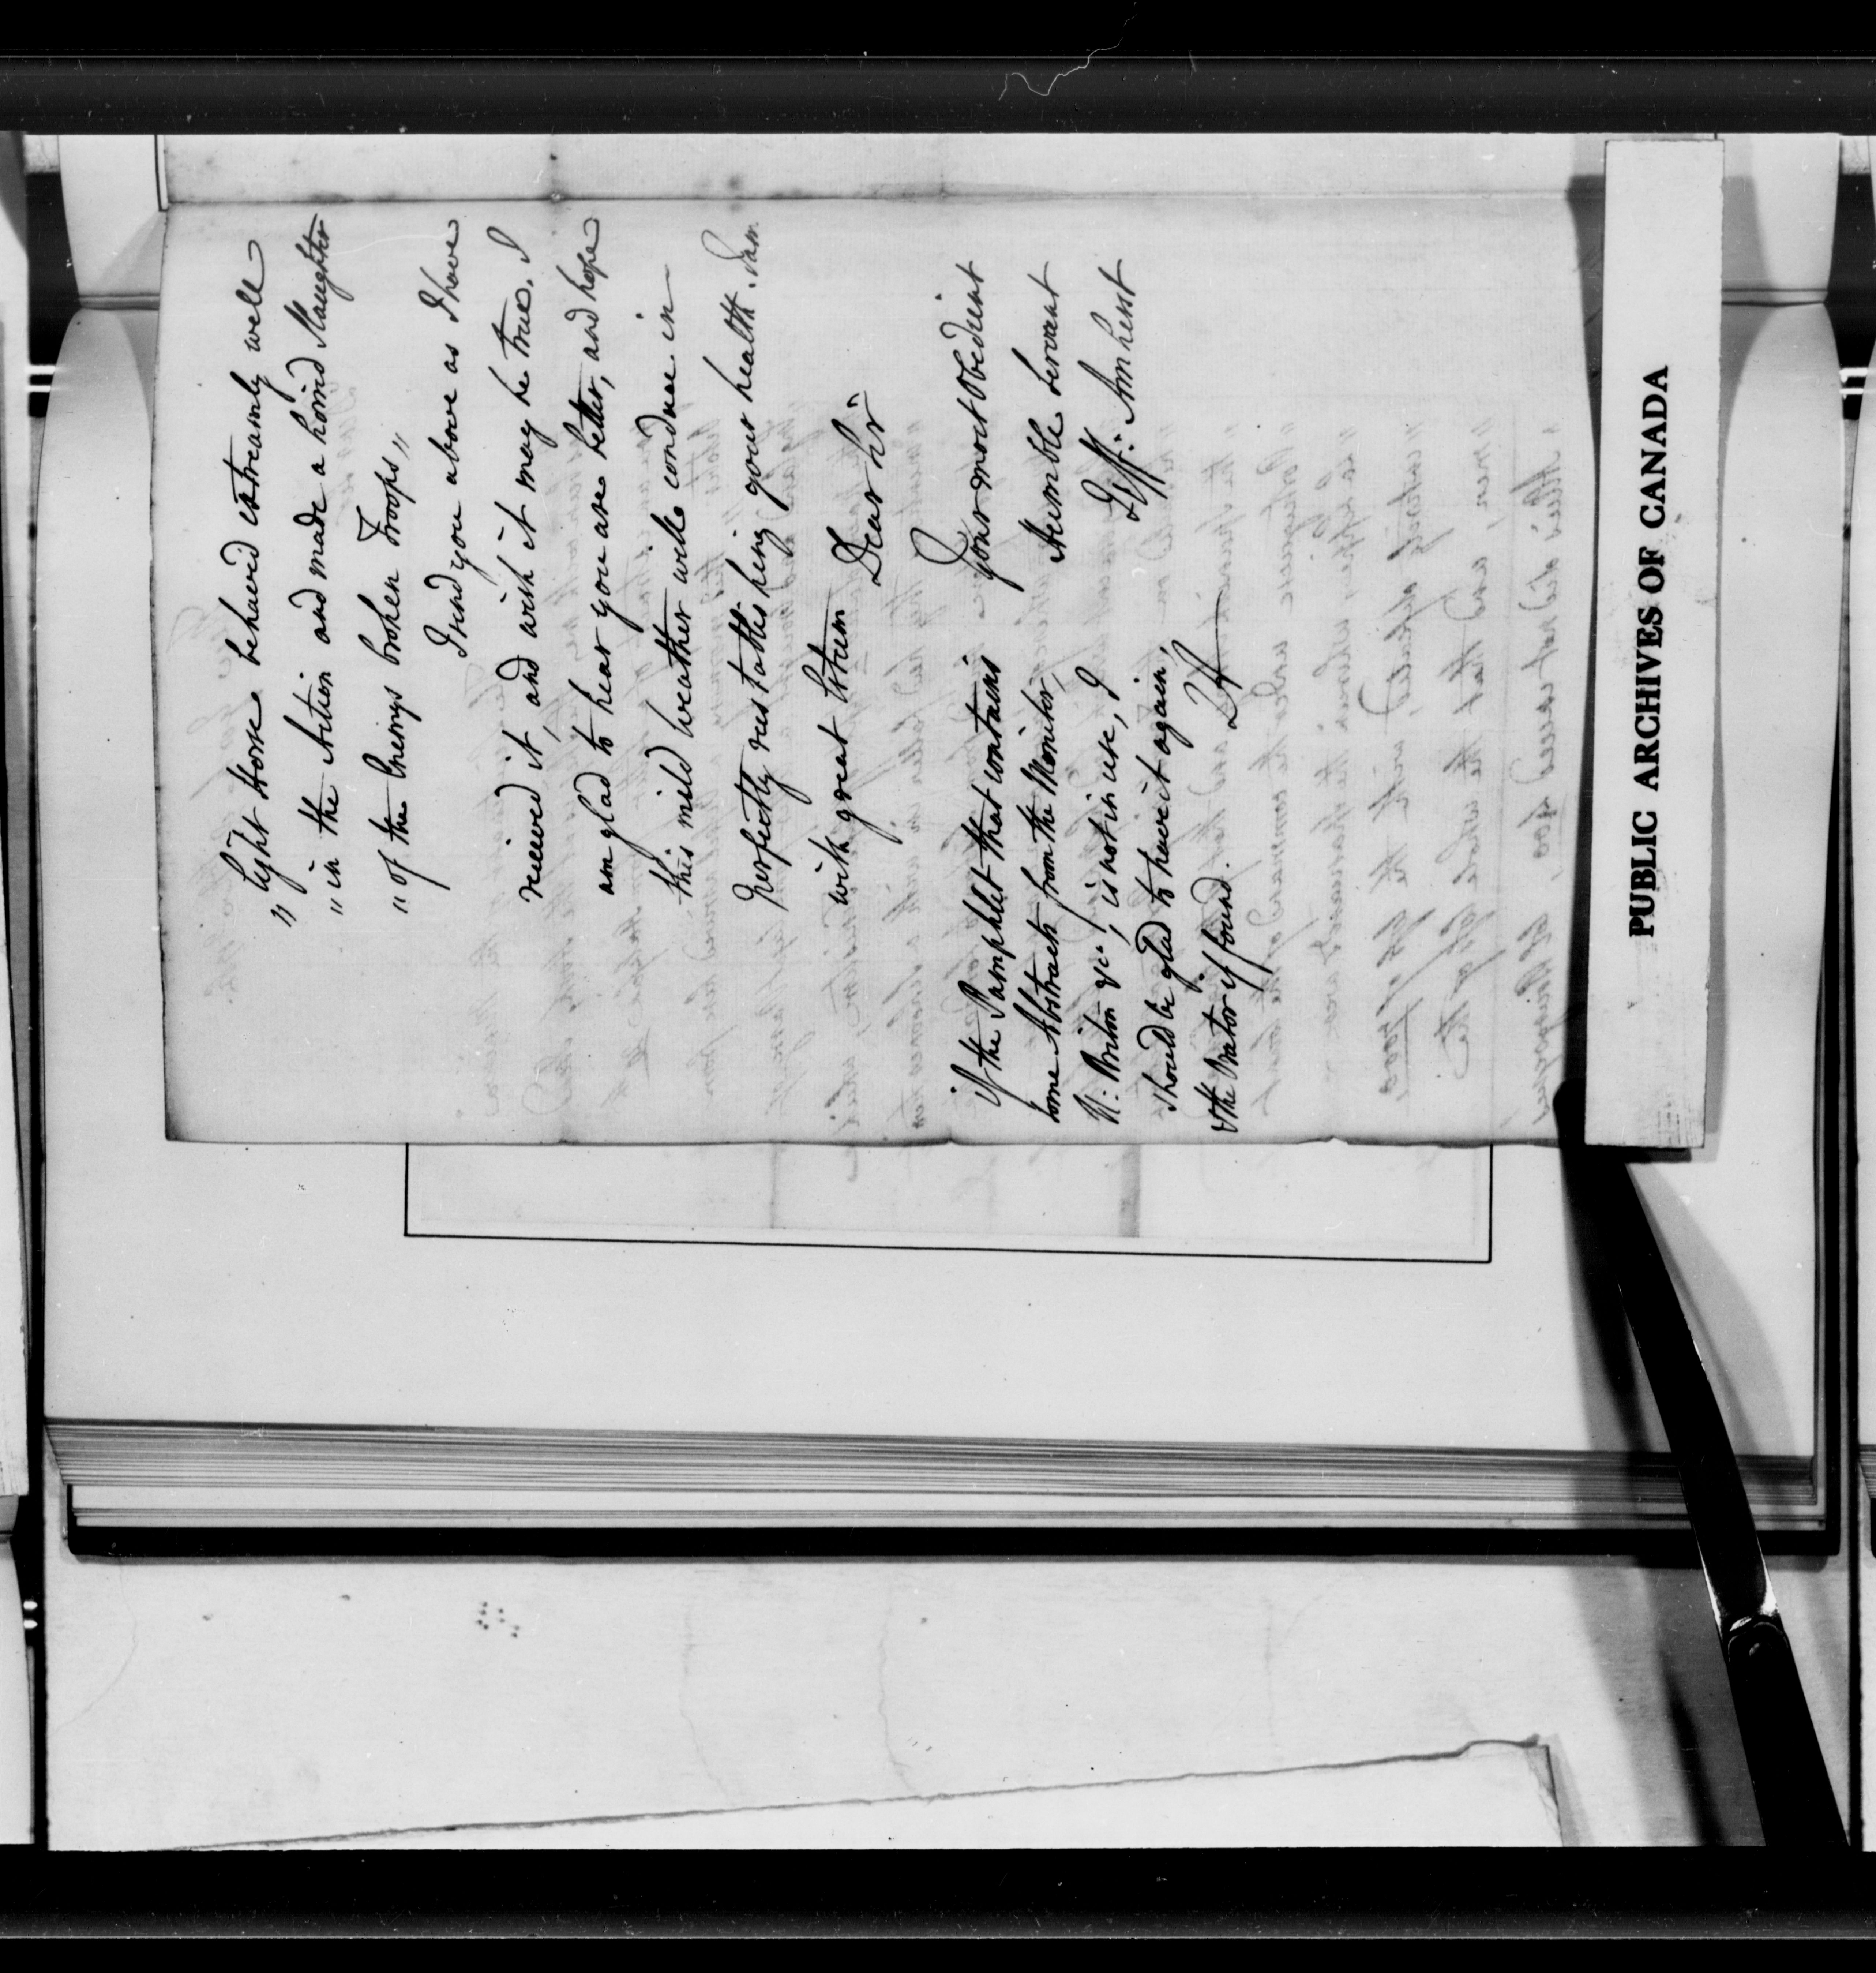 " light Horse behaved extreamly well
" in the Action and made a horrid Slaughter
" of the Enemys broken Troops "
I send you above as I have
recieved it, and wish it may be true. I
am glad to hear you are better, and hope
this mild weather will conduce in
perfectly restablishing your health. I am
with great Esteem
Dear Sir
Your most Obedient
Humble Servant
Jeff: Amherst
if the Pamphlet that contains
some Abstracts from the Monitor,
N: Briton &c:, is not in use, I
should be glad to have it again,
& the Orator if found.
JA
PUBLIC ARCHIVES OF CANADA